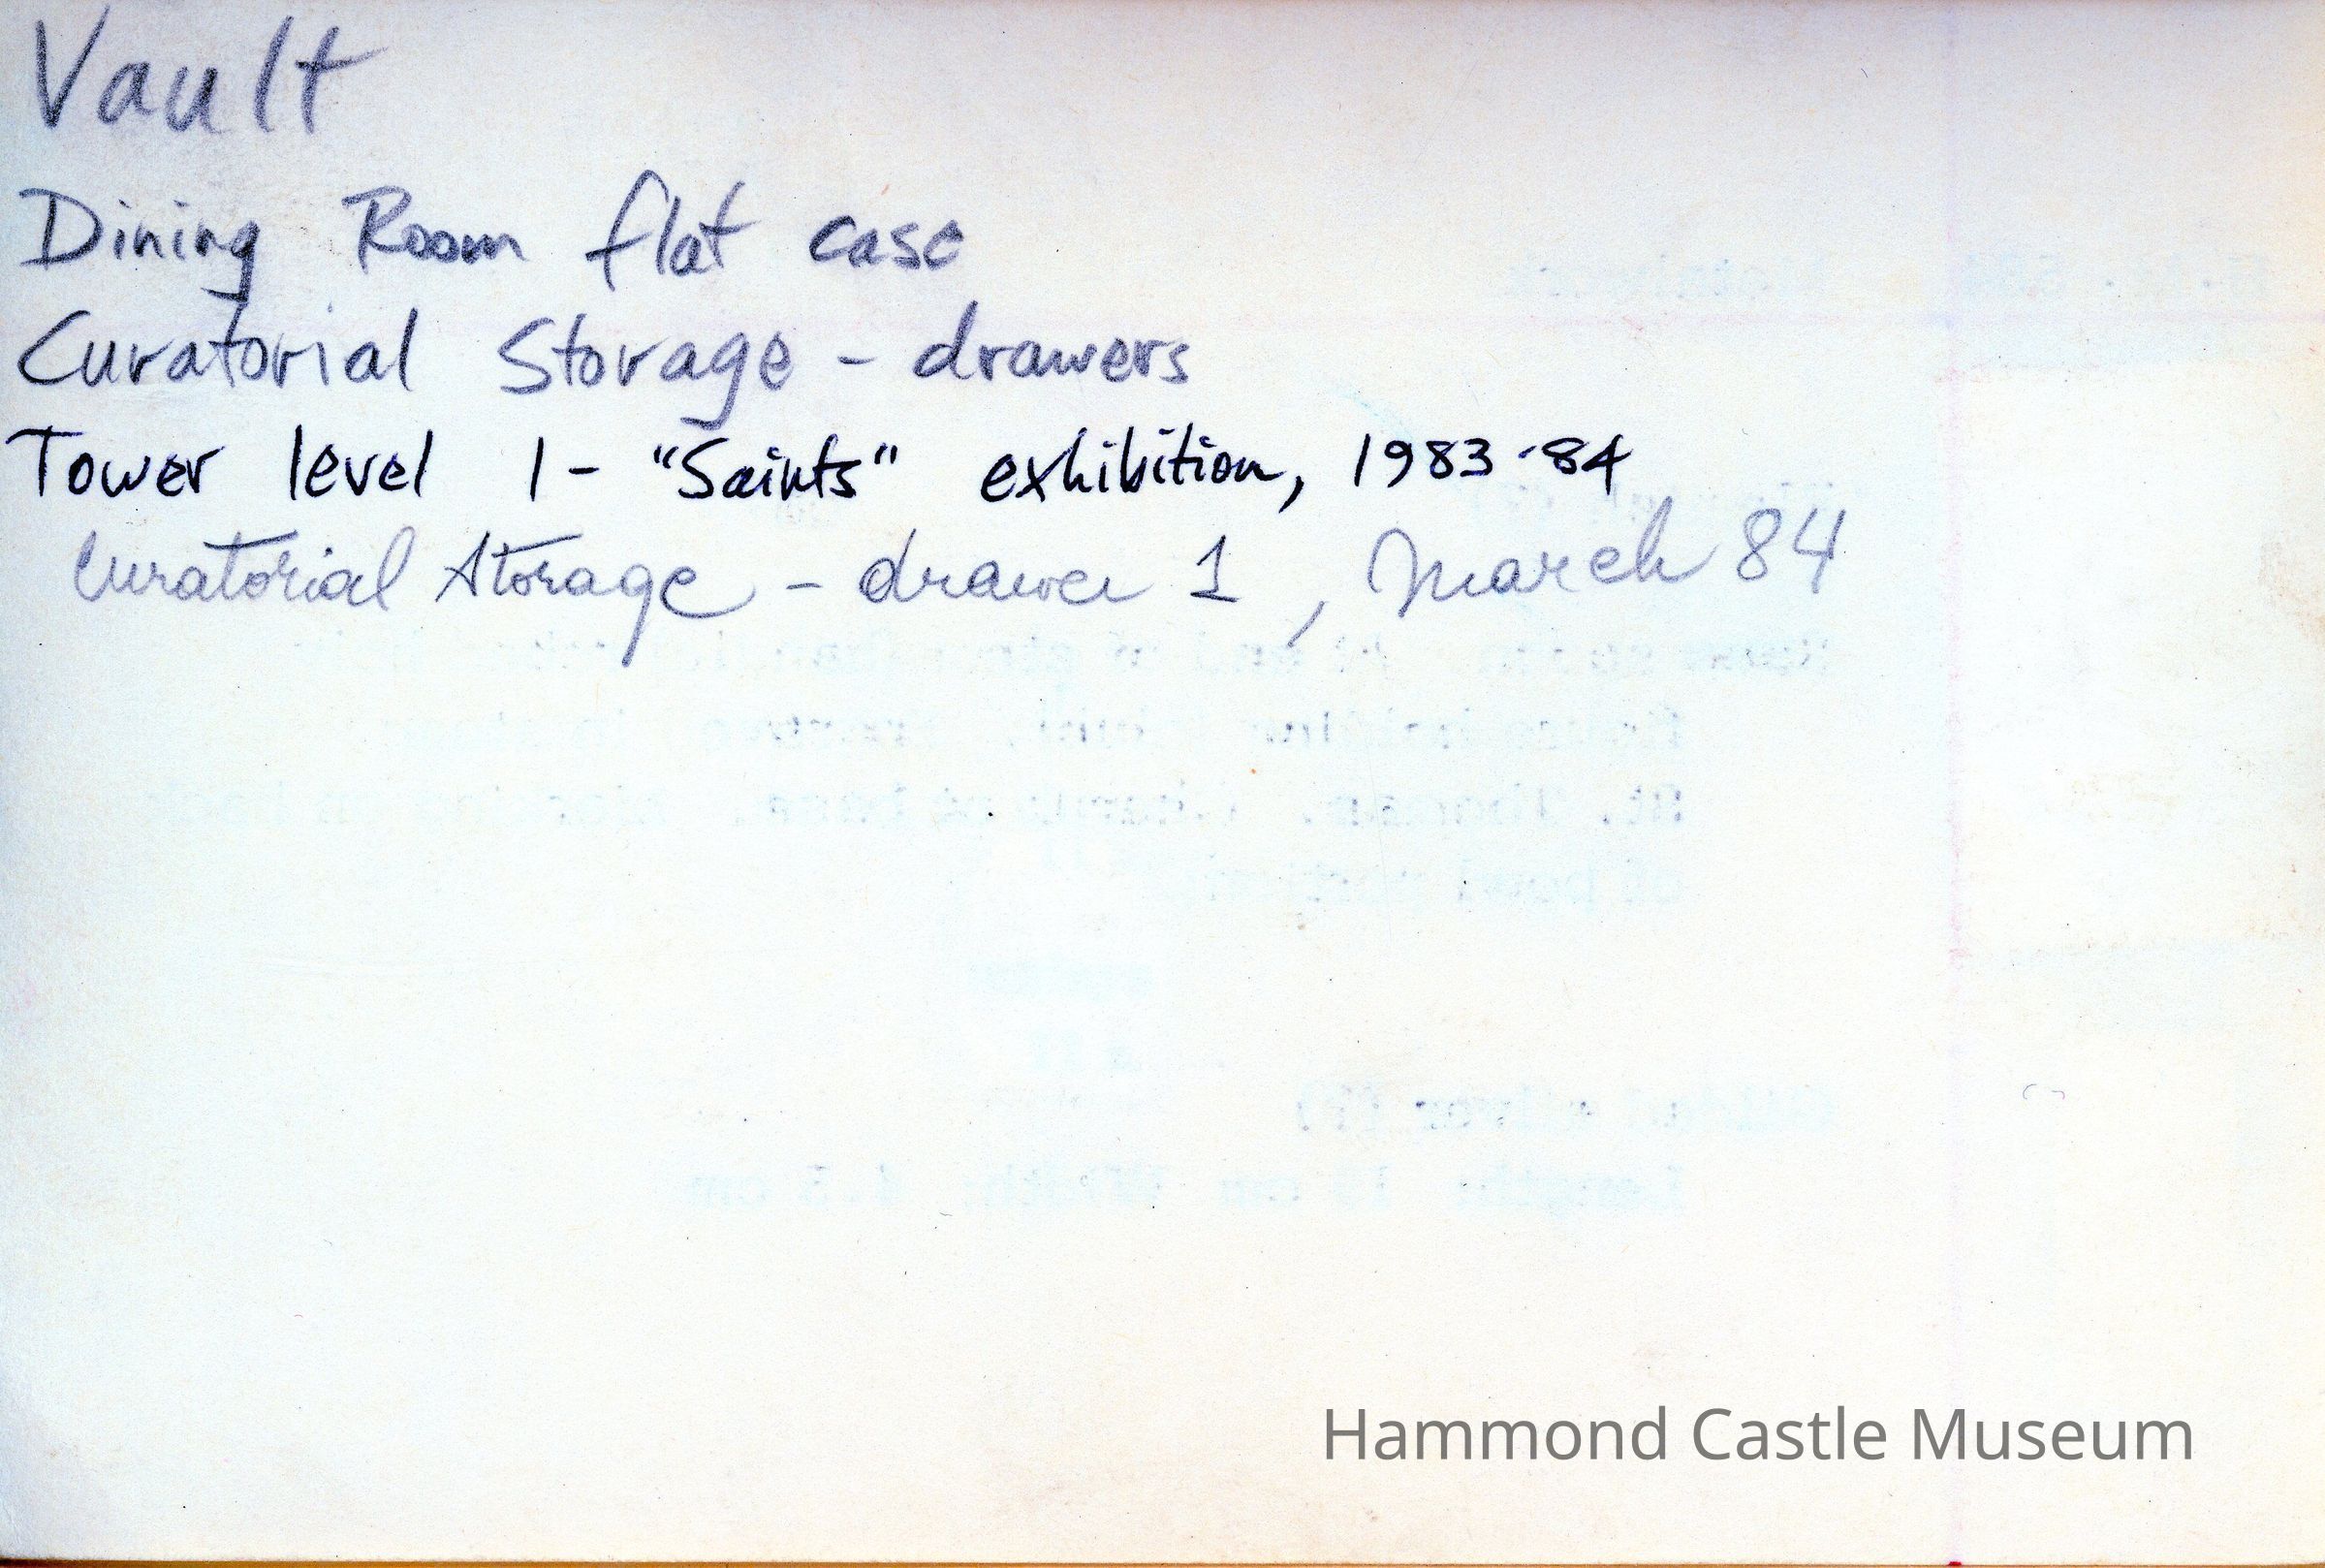 Vault
Dining Room flat case
Curatorial Storage - drawers
Tower level 1 - "Saints" exhibition, 1983-84
Curatorial Storage - drawer 1, March 84
Hammond Castle Museum